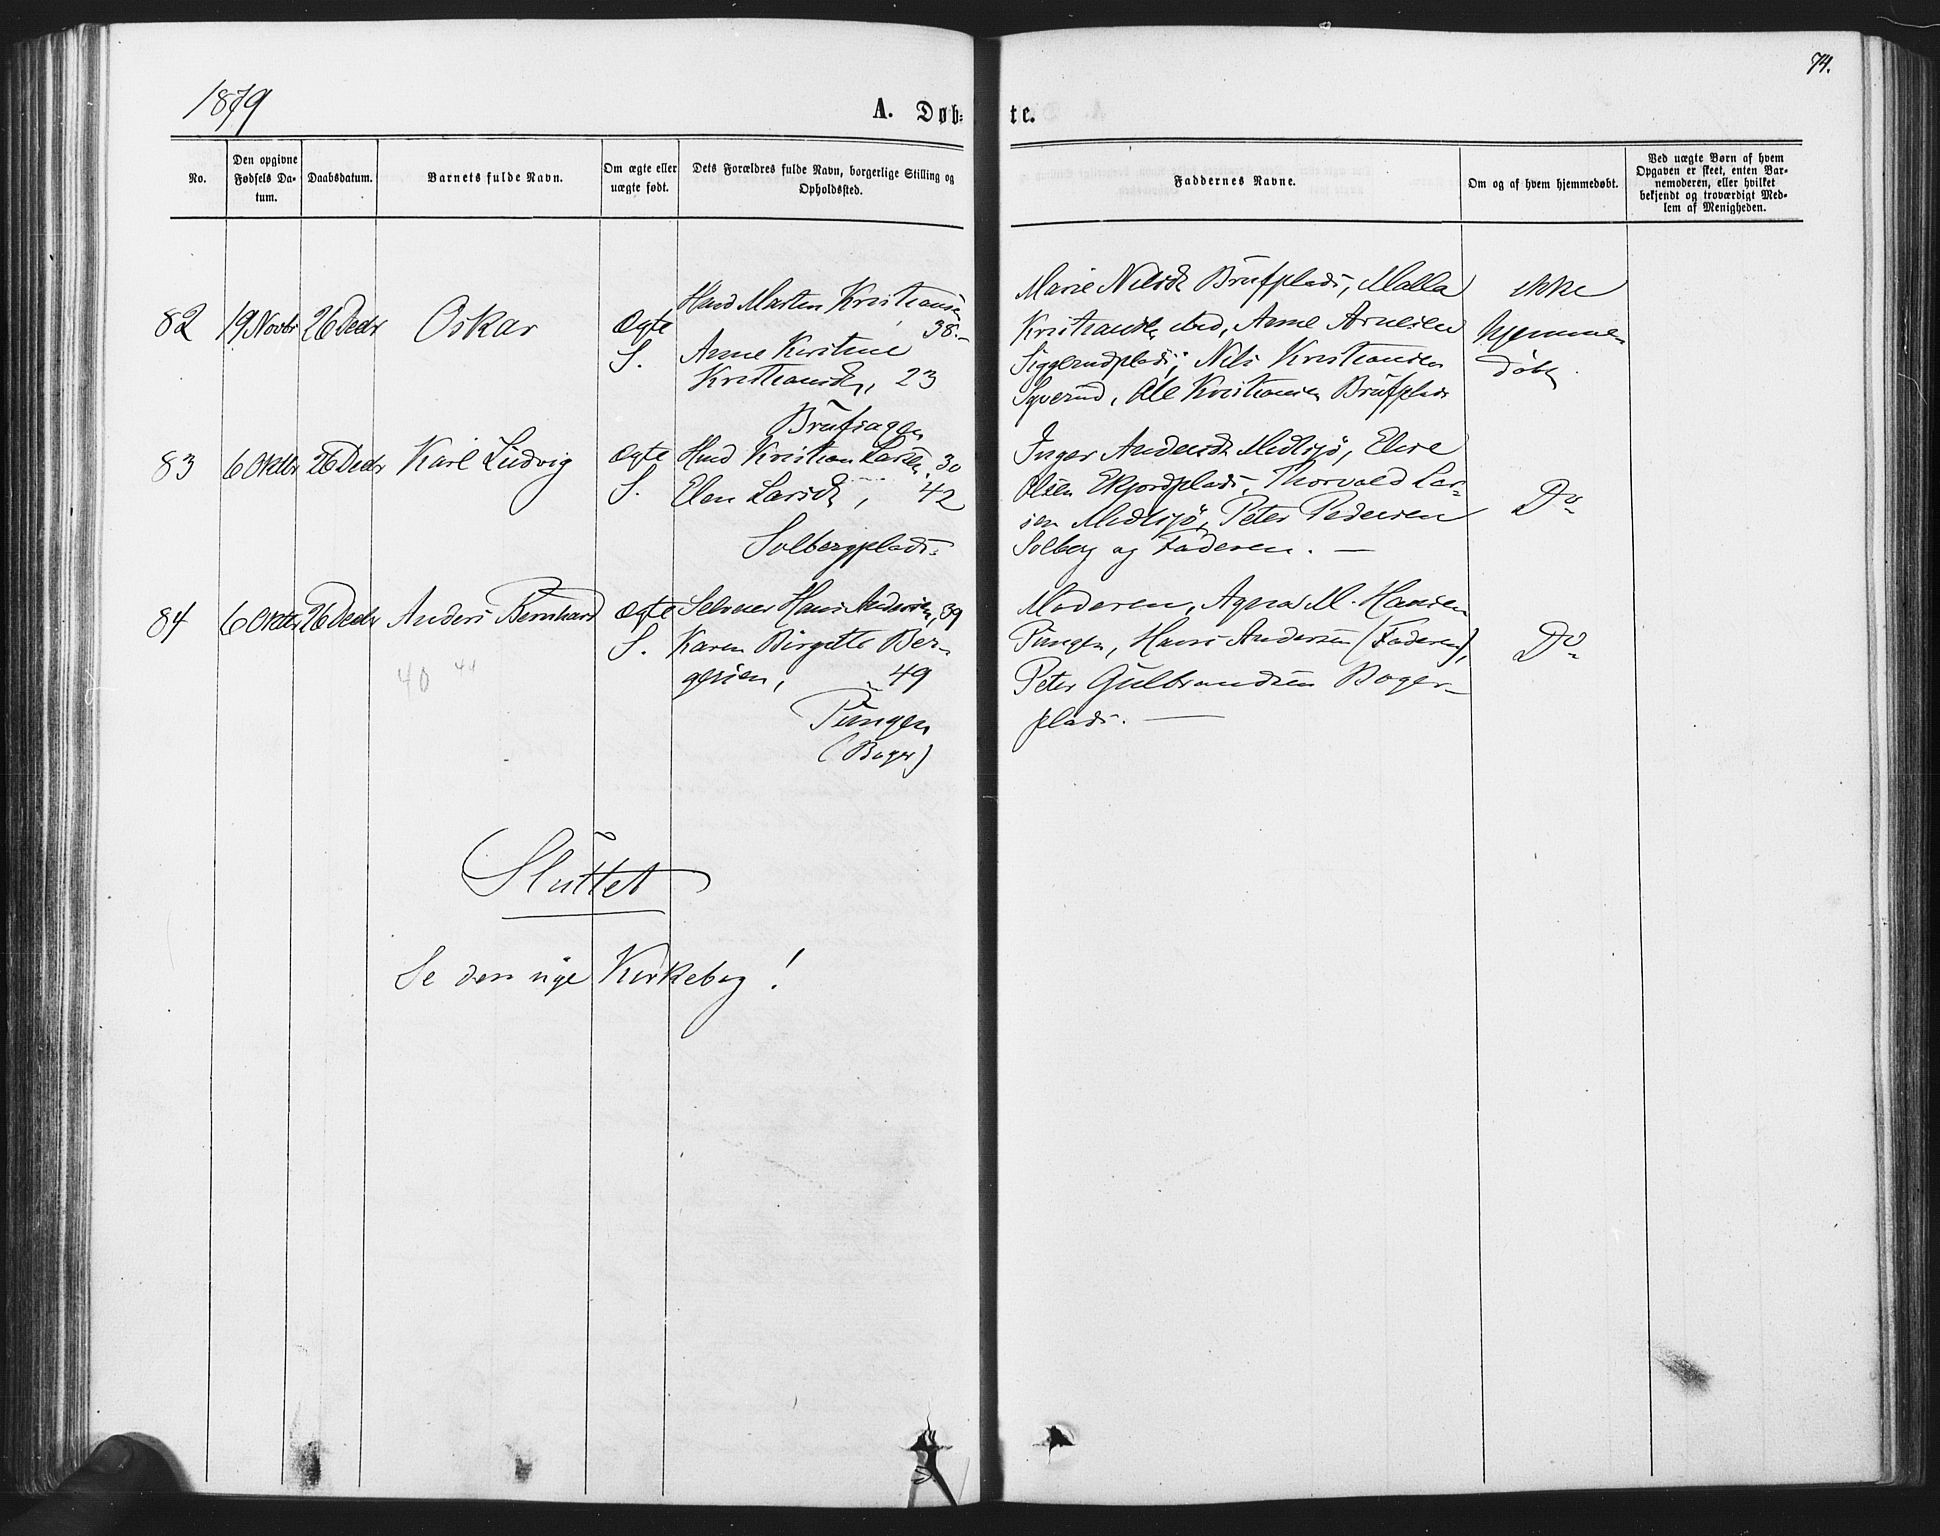 74.
1879
A. Døb-
te.
No.
Den opgivne
Fødsels Da-
tum.
Daabsdatum.
Barnets fulde Navn.
Om ægte eller
uægte født.
Dets Forældres fulde Navn, borgerlige Stilling og
Opholdssted.
Faddernes Navne.
Om og af hvem hjemmedøbt.
Ved uægte Børn af hvem
Opgaven er skeet, enten Bar-
nemoderen, eller hvilket
bekjendt og troværdigt Med-
lem af Menigheden.
82
19 Novbr
26 Decbr
Oskar
Ægte
S.
Husmd Morten Kristiansen
38.-
Anne Kirstine
Kristiansdtr, 23
Marie Nilsdtr Brufplads, Malla
Kristiansdtr, Anne Arnesen
Siggerudplads, Nils Kristiansen
Syverud, Ole Kristiansen Brufplads
ikke
hjemme
døbt
83
6 Oktbr
26 Decbr
Karl Ludvig
Ægte
S.
Husmd Kristian Larsen, 30
Elen Larsdtr, 42
Solbergplads.
Inger Andersdtr Midtsjø, Elise
Olsen Ekjordplads, Thorvald Lar-
sen Midtsjø, Peter Pedersen
Solberg og Faderen. —
Do
84
6 Oktbr
26 Decbr
Anders Bernhard
Ægte
S.
Selveier Hans Andersen, 39
Karen Birgitte Ber-
gersen, 49
Pungen
(Boger)
Moderen, Agna M. Hansen
Pungen, Hans Andersen (Faderen),
Peter Gulbrandsen Boger-
plads. —
Do
40 44
Sluttet
Se den nye Kirkebog!